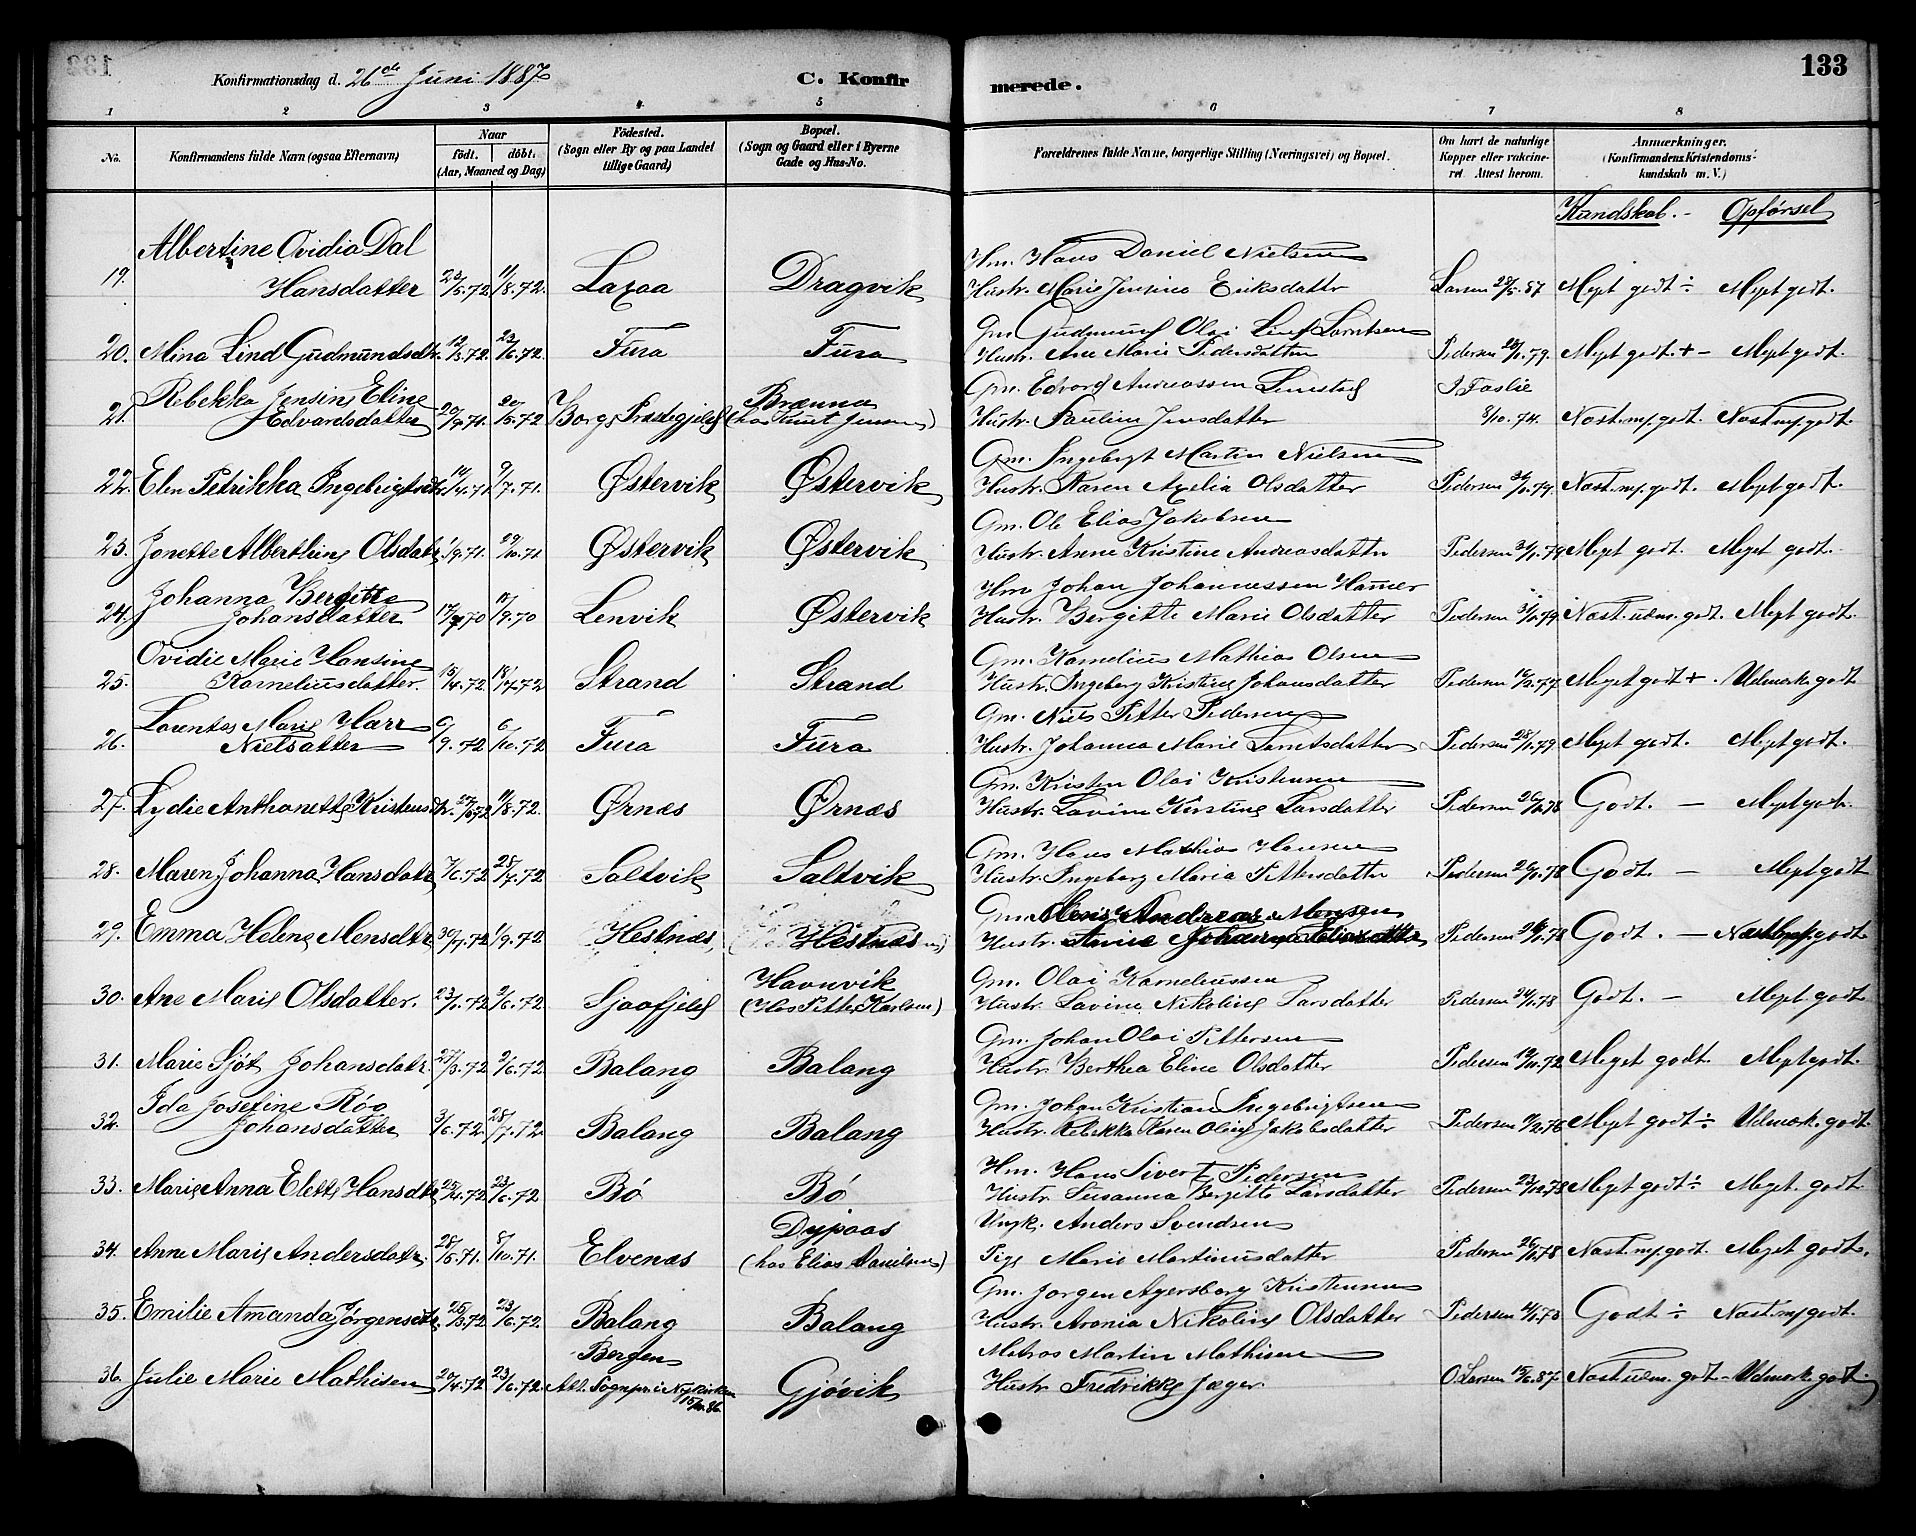 133
Konfirmationsdag d. 26de Juni 1887
C. Konfir
merede.
1 2 3 4 5 6 7 8
No.
Konfirmandens fulde Navn (ogsaa Efternavn)
Naar
födt. döbt.
(Aar, Maaned og Dag)
Födested.
(Sogn eller By og paa Landet
tillige Gaard)
Bopæl.
(Sogn og Gaard eller i Byerne
Gade og Hus-No.
Forældrenes fulde Navne, borgerlige Stilling (Næringsvei) og Bopæl.
Om havt de naturlige
Kopper eller vakcine-
ret. Attest herom.
Anmærkninger.
(Konfirmandens Kristendoms-
kundskab m. V.)
Kundskab. - Opførsel
Albertine Ovidia Dal Hm. Hans Daniel Nielsen
19. Hansdatter 23/5.72 11/8.72. Laxaa Dragvik Hustr. Marie Jensine Eriksdatter Larsen 29/5.87 Meget godt ÷ Meget godt.
Gm Gudmund Olai Lind Lorntsen
20. Mina Lind Gudmundsdtr. 12/3.72. 23/6.72. Fura Fura Hustr. Ane Marie Pedersdatter Pedersen 28/1.79. Meget godt.+ - Meget godt.
Rebekka Jensine Eline Brænna Gm. Edvard Andreassen Lenestad I Faslie
21. Edvardsdatter 20/9.71. 20/5.72 Borge Præstegjeld (hos Knut Jensen) Hustr. Pauline Jensdatter 8/10.74. Næst.m.godt. Næst meget godt.
Gm. Ingebrigt Martin Nielsen
22. Elen Petrikka Ingebrigtsdtr. 14/4.71 9/7.71. Østervik Østervik Hustr. Karen Axelia Olsdatter Pedersen 31/1.79. Næst.m.godt. Meget godt.
Gm. Ole Elias Jakobsen
23. Jonette Alberthine Olsdatr. 1/9.71. 29/10.71 Østervik Østervik Hustr. Anne Kristine Andreasdatter Pedersen 31/1.79 Meget godt. Meget godt.
Johanna Bergitte Hm Johan Johannessen Hamer
24. Johansdatter 17/7.70 18/9.70 Lenvik Østervik Hustr. Bergitte Marie Olsdatter Pedersen 31/1.79. Næst.udm.godt. Meget godt.
Ovidie Marie Hansine Gm. Kornelius Mathias Olsen
25. Korneliusdatter. 15/4.72 18/7.72 Strand Strand Hustr. Ingeborg Kristine Johansdatter Pedersen 16/2.77 Meget godt +. Udmærk. godt
Lorentze Marie Harr Gm. Niels Petter Pedersen
26. Nielsatter 6/9.72 6/10.72 Fura Fura Hustr. Johanna Marie Lorntsdatter Pedersen 28/1.79. Meget godt. Meget godt.
Gm. Kristen Olai Kristensen
27. Lydie Anthonette Kristensdtr. 11/8.72. Ørnæs Ørnæs Hustr. Lovine Kirstine Larsdatter Pedersen 26/1.78 Godt. - Meget godt.
Gm. Hans Mathias Hansen
28. Maren Johanna Hansdatr. 7/6.72 28/7.72 Saltvik Saltvik Hustr. Ingeborg Maria Pettersdatter Pedersen 26/1.78 Godt. - Meget godt
Gm. Mons Andreas Monsen
29. Emma Helene Monsdtr. 30/7.72 1/9.72 Hestnæs Hestnæs Hustr. Anne Johanna Eliasdatter Pedersen Godt. - Næst.m.godt
Havnvik Gm. Olai Korneliussen
30. Ane Marie Olsdatter. 23/1.72 2/6.72 Sjaafjeld (Hos Petter Karlsen) Hustr. Lavine Nikoline Larsdatter Pedersen 24/1.78 Godt. - Meget godt
Gm. Johan Olai Pettersen
31. Marie Sjøt Johansdatr. 27/3.72 2/6.72 Balang Balang Hustr. Berthea Eline Olsdatter Pedersen 19/10.72 Meget godt. Meget godt.
Ida Josefine Røg Gm. Johan Kristian Ingebrigtsen
32. Johansdatter 3/6.72 28/7.72 Balang Balang Hustr. Rebekka Karen Oline Jakobsdatter Pedersen Meget godt ÷ Udmærk. godt.
Hm. Hans Sivert Pedersen
33. Marie Anna Elette Hansdtr. 25/4.72 23/6.72 Bø Bø Hustr. Susanna Bergitte Larsdatter Pedersen 23/12.78 Meget godt ÷ Meget. godt
Dypaas Ungk. Anders Svendsen
34. Anne Marie Andersdatr. 28/5.71. 8/10.71. Elvenæs (hos Elias Danielsen) Pige Marie Martinusdatter Pedersen 26/1.78 Næst.m.godt. Meget godt.
Gm. Jørgen Agersborg Kristensen
35. Emilie Amanda Jørgensdtr. 25/3.72 23/6.72. Balang Balang Hustr. Aronia Nikoline Olsdatter Pedersen Godt ÷ Næst.m.godt.
Bergen Matros Martin Mathisen
36. Julie Marie Mathisen 20/4.72 23/6.72. Att. Sognepr. i Nykirken Gjøvik Hustr. Fredrikke Jæger O. Larsen 15/6.87. Næst udm. godt - Udmærk. godt.
15/10.86.